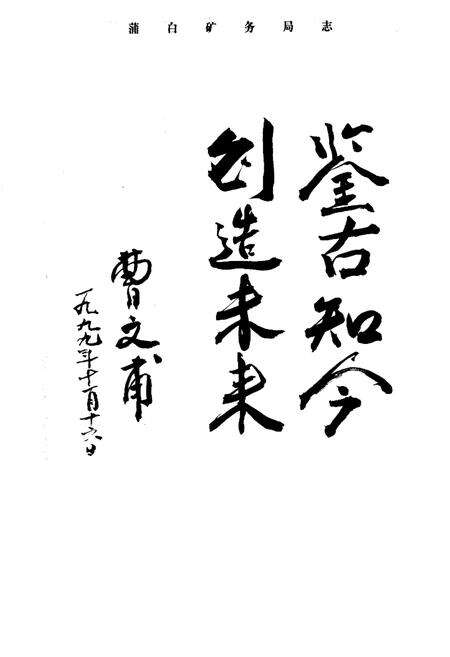 蒲白矿务局志
鉴古知今
创造未来
曹文甫
一九九九年十月十六日